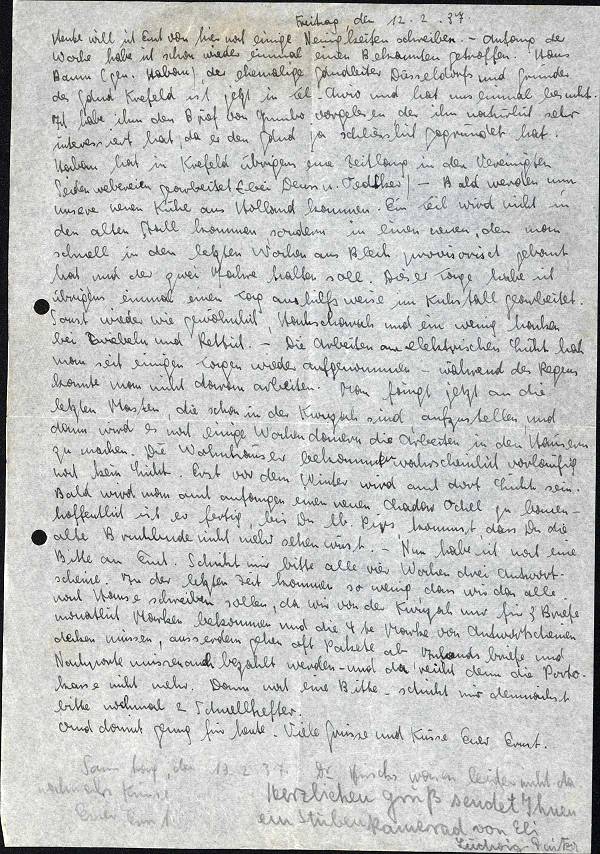 Freitag den 12.2.37
Heute will ich Euch von hier noch einige Neuigkeiten schreiben. - Anfang der
Woche habe ich schon wieder einmal einen Bekannten getroffen. Hans
Baum (gen. Habau) der ehemalige Gauleiter Düsseldorfs und Gründer
des Gaus Krefeld ist jetzt in Tel Awiw und hat uns einmal besucht.
Ich habe ihm den Brief von vorgelesen der ihn natürlich sehr
interessiert hat, da er den ja schliesslich gegründet hat.
hat in Krefeld übrigens eine Zeitlang in den Vereinigten
Seidenwebereien gearbeitet (bei Deuss u. Oetker) - Bald werden nun
unsere neuen Kühe aus Holland kommen. Ein Teil wird nicht in
den alten Stall kommen sondern in einen neuen, den man
schnell in den letzten Wochen aus Blech provisorisch gebaut
hat und der zwei Jahre halten soll. Dieser Tage habe ich
übrigens einmal einen Tag aushilfsweise im Kuhstall gearbeitet.
Sonst wieder wie gewöhnlich, und ein wenig hacken
bei Zwiebeln und Rettich. - Die Arbeiten am elektrischen Licht hat
man seit einigen Tagen wieder aufgenommen - während des Regens
konnte man nicht daran arbeiten. Man fängt jetzt an die
letzten Masten, die schon in der Kwuzah sind aufzustellen und
dann wird es noch einige Wochen dauern die Arbeiten in den Häusern
zu machen. Die Wohnhäuser bekommen wahrscheinlich vorläufig
noch kein Licht. Erst vor dem Winter wird auch dort Licht sein.
Bald wird man auch anfangen einen neuen Chadar Ochel zu bauen -
hoffentlich ist er fertig, bis Du lb. kommst, dass Du die
alte Bruchbude nicht mehr sehen wirst. - Nun habe ich noch eine
Bitte an Euch. Schickt mir bitte alle vier Wochen drei Antwort-
scheine. In der letzten Zeit kommen so wenig, dass wir das alle
nach Hause schreiben sollen, da wir von der Kwuzah nur für 3 Briefe
monatlich Marken bekommen und die 4te Marke von Antwortscheinen
decken müssen, ausserdem gehen oft Pakete als und
Nachporto müssen auch bezahlt werden - und da reicht dann die Porto-
kasse nicht mehr. Dann noch eine Bitte - schickt mir demnächst
bitte nochmal 2 Schnellhefter.
Und damit genug für heute. Viele Grüsse und Küsse Euer Ernst.
Samstag, den 13.2.37 Dr. Hirschs waren leider nicht da
nochmals Küsse
Euer Ernst.
Herzlichen Gruß sendet Ihnen
ein Stubenkamerad von
Ludwig